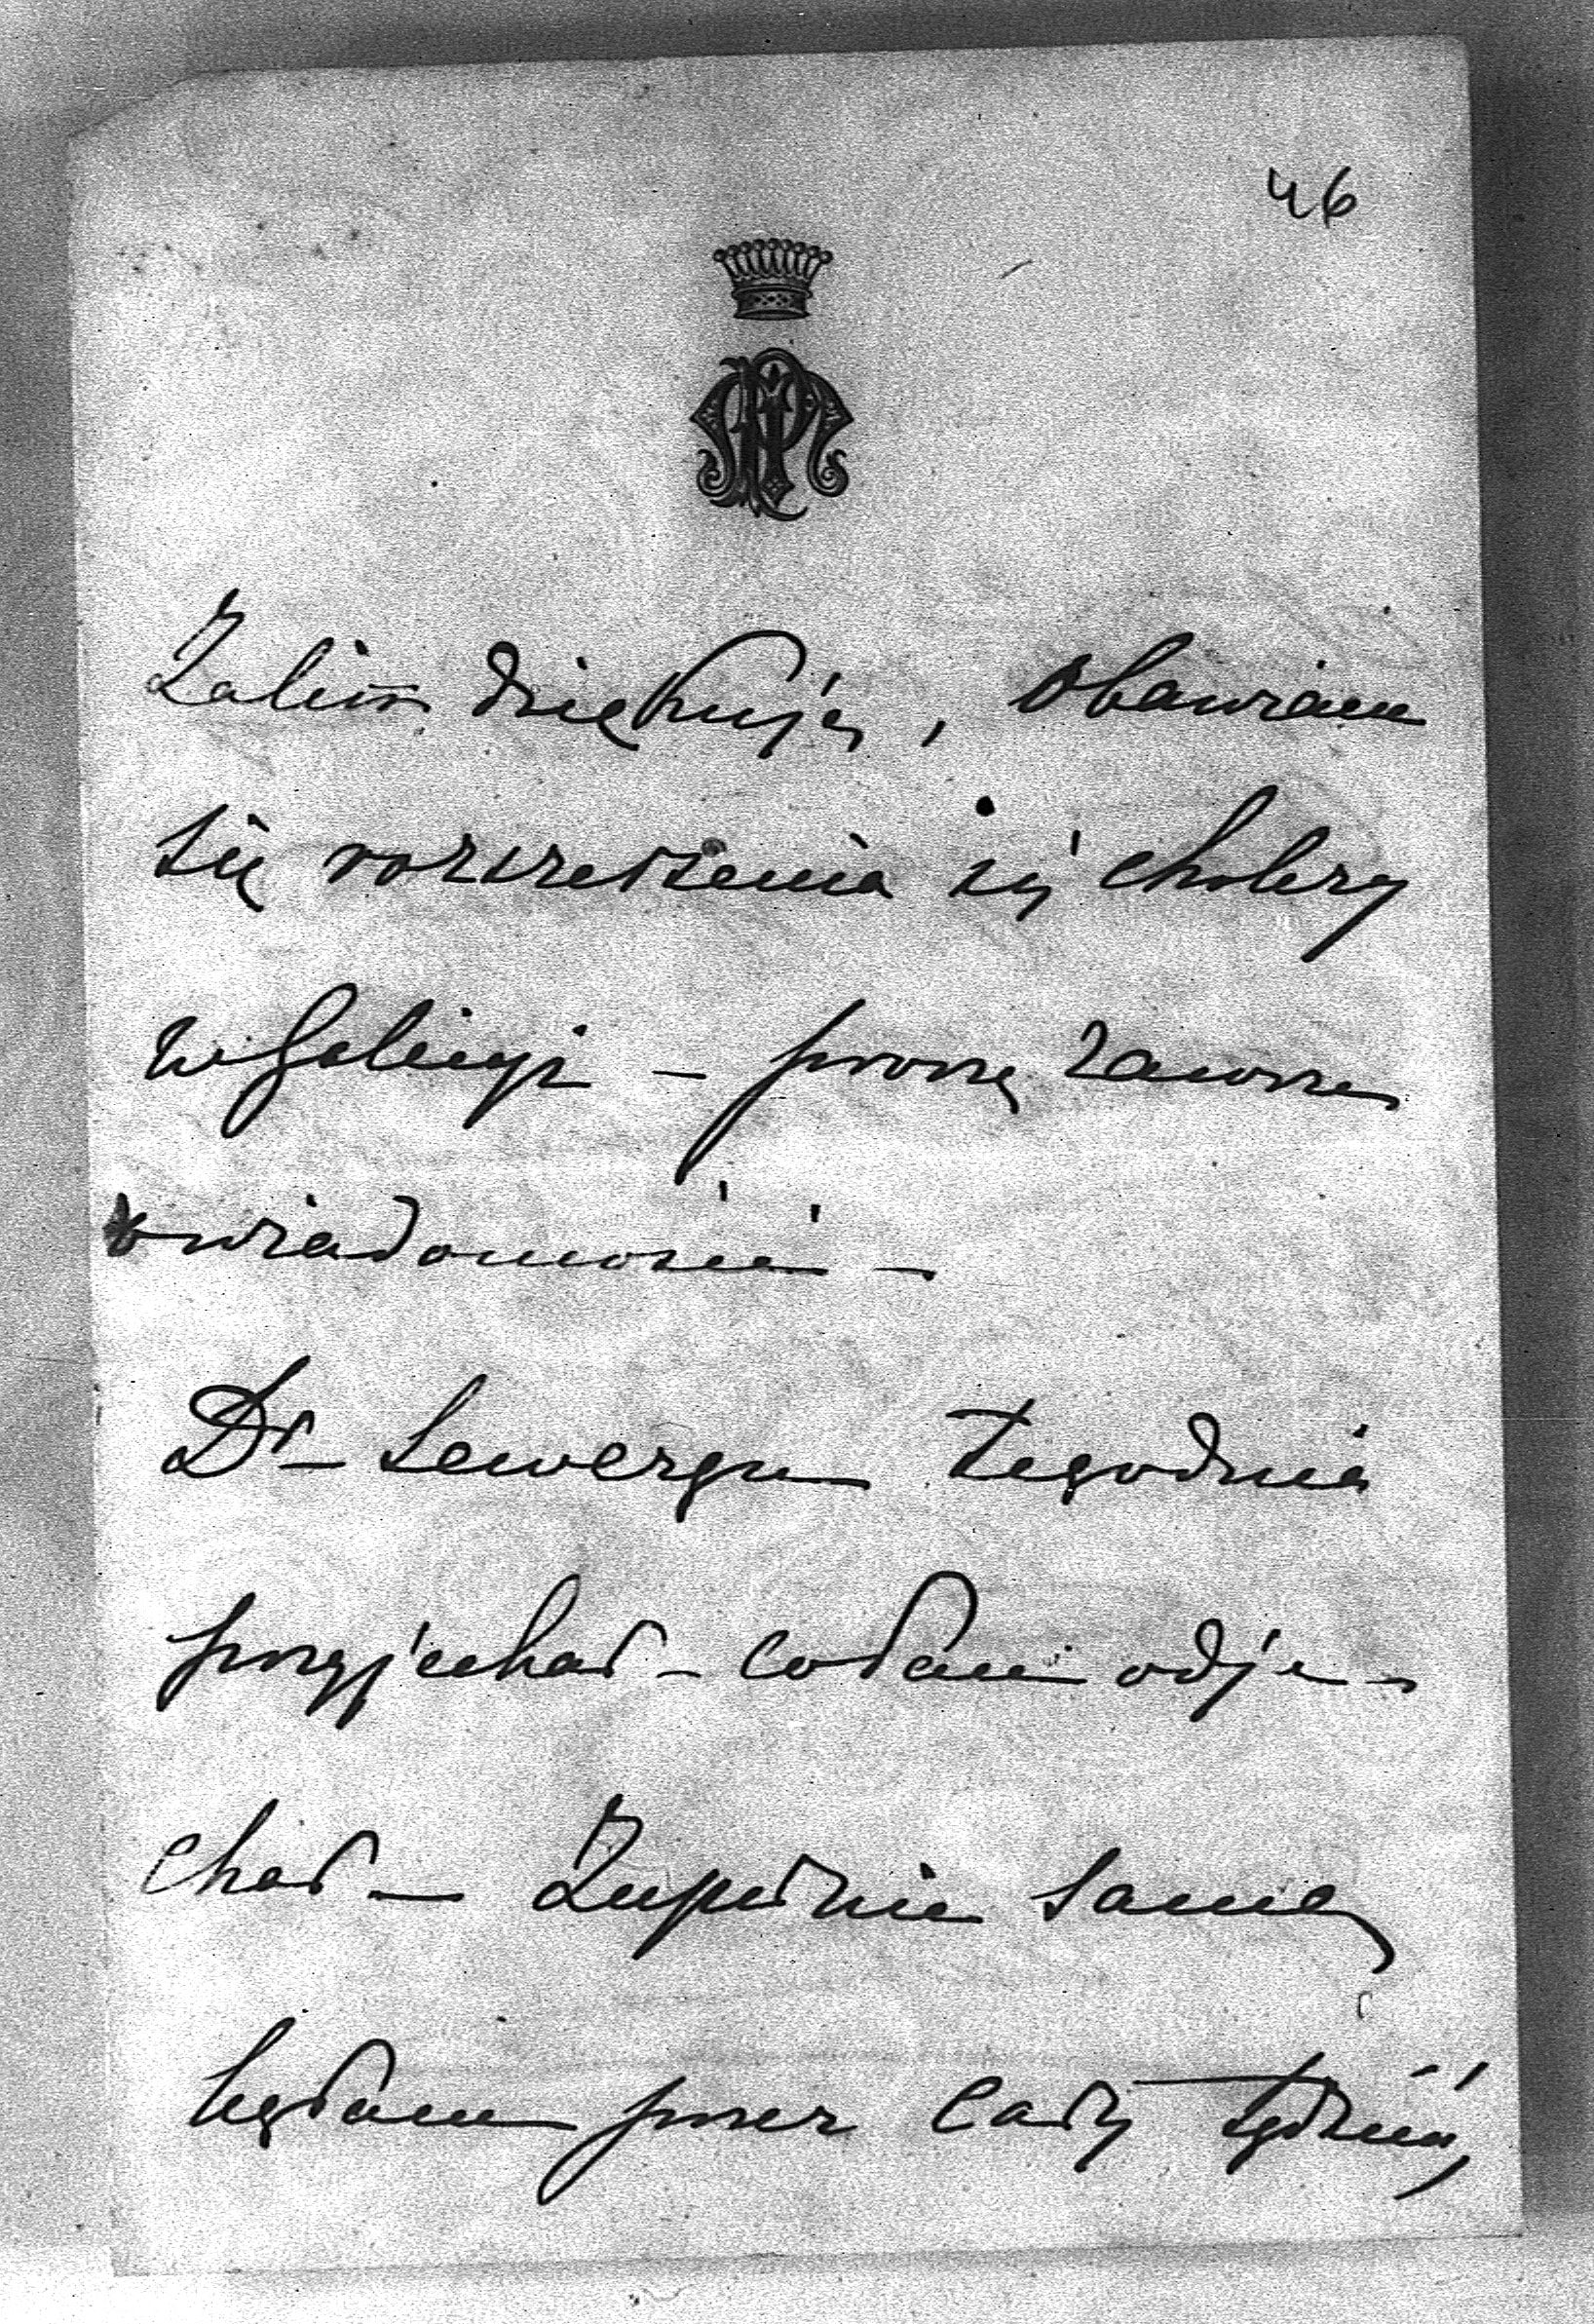 46
Zalim dziękuję, obawiam
się rozszerzenia się cholery
w Galicyi – proszę zawsze
o wiadomości –
Dr – Seweryn tegodnia
przyjechał – codam odje-
chał – Zupełnie sama
byłam przez cały tydzień,